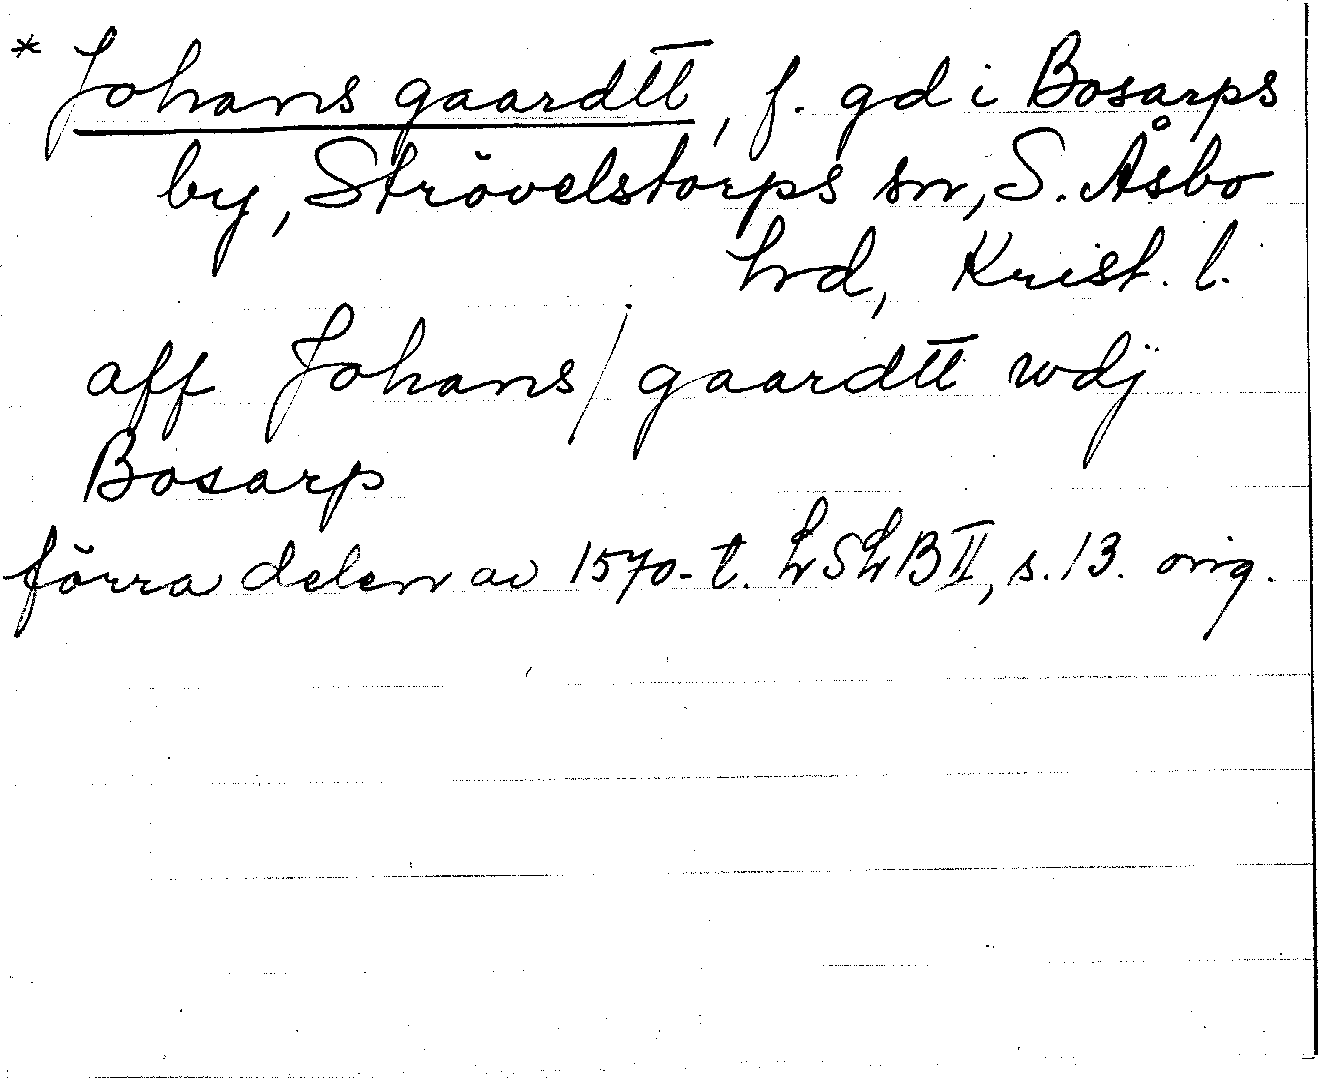 * Johans gaardtt, f. gd i Bosarps
by, Strövelstorps sn, S. Åsbo
hrd, Krist. l.
aff Johans/gaardtt wdj
Bosarp
förra delen av 1570-t. LSLB II, s. 13. orig.